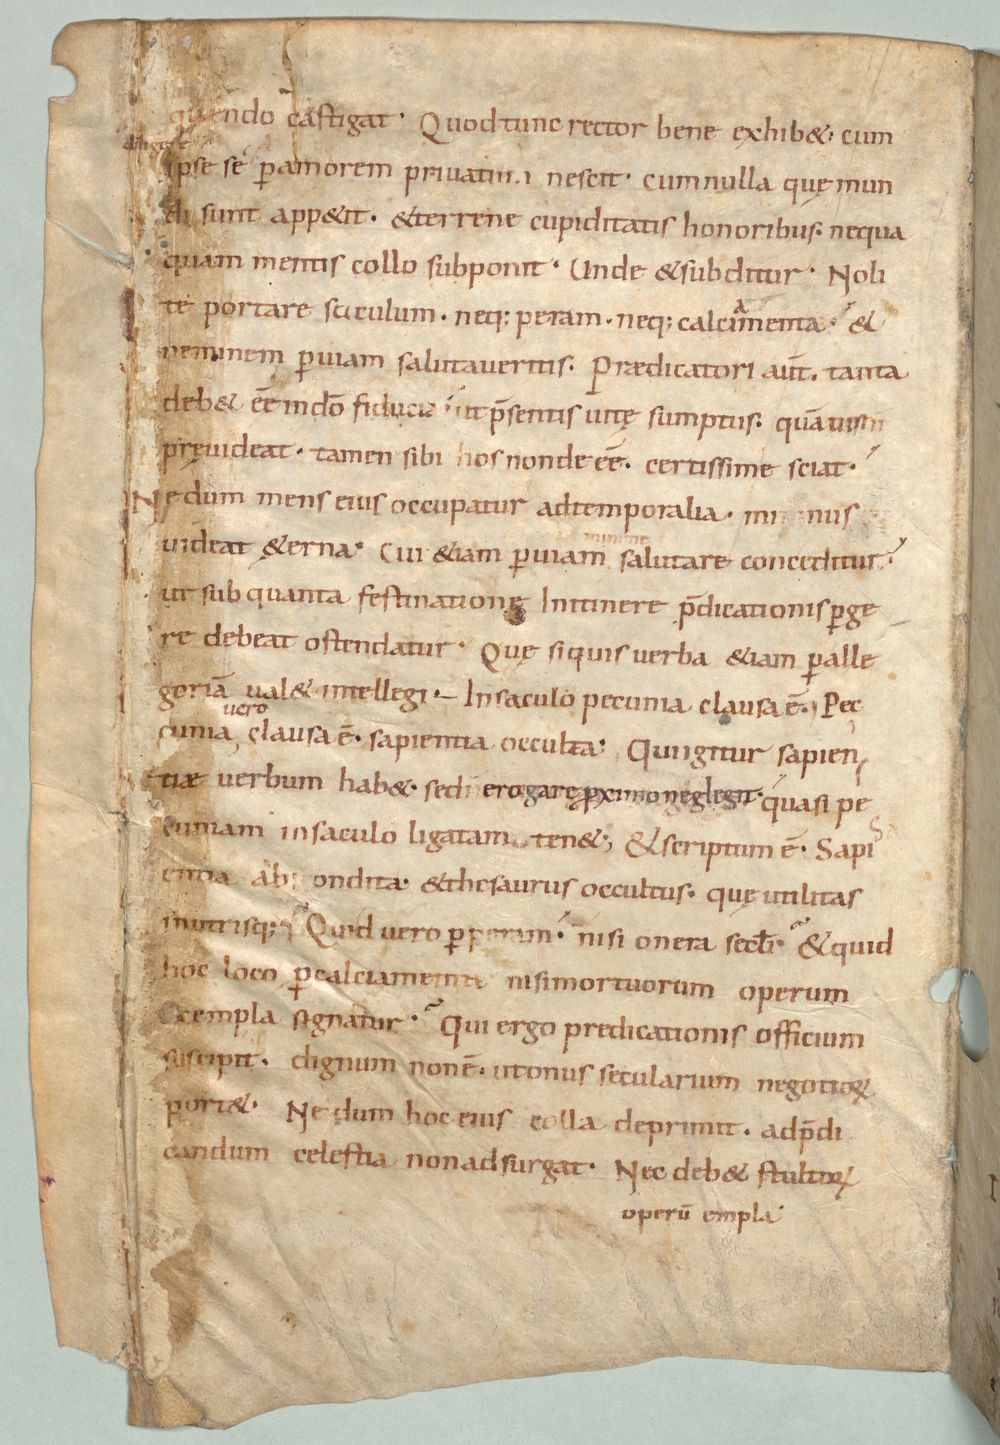 quendo castigat· Quod tunc rector bene exhib&· cum
diligere
ipse sé p̄ amorem privatum nescit· cum nulla quę mun
di sunt app&it· & terrene cupiditatis honoribus· nequa
quam mentis collo subponit· Unde & subditur· Noli
te portare sacculum· neq; peram· neq; calciamenta· &
neminem p̄ viam salutaveritis· Prædicatori aut̄· tanta
deb& eē in dō fiducia ut p̄sentis vitę sumptus· quāvis n̄
pręvideat· tamen sibi hos non deeē· certissime sciat·
Ne dum mens eius occupatur ad temporalia· minus
uideat &erna· Cui &iam p̄ viam salutare conceditur·
minime
ut sub quanta festinatione In itinere p̄dicationis p̄ge
re debeat ostendatur· Quę si quis verba &iam p̄ alle
goriā val& intellegi·– In saculo pecunia clausa ē· Pec
cunia, clausa ē· sapientia occulta· Qui igitur sapien
vero
tiæ verbum hab&· sed erogare p̄ximo neglegit· quasi pe
cuniam in saculo ligatam ten&; & scriptum ē· Sapi
entia abscondita· & thesaurus occultus· quę utilitas
in utrisq; Quid vero p̄ peram· nisi onera secl̄i· & quid
hoc loco p̄ calciamenta nisi mortuorum operum
exempla signatur· Qui ergo predicationis officium
suscipit· dignum non ē· ut onus secularium negotioꝝ
port&· Ne dum hoc eius colla deprimit· ad p̄di
candum celestia non adsurgat· Nec deb& stultoꝝ
operū empla